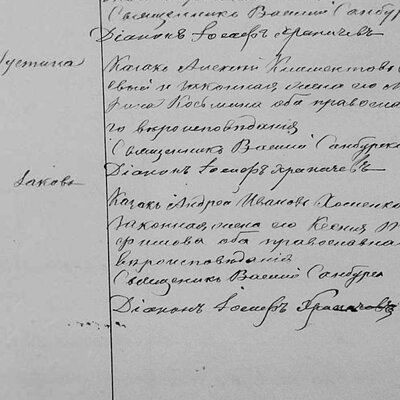 Священникъ Василій Самбурск
Діаконъ Іосифъ Храпачевъ
Устина
Казакъ Алексій Климентовъ
евый и законная жена его М
Козьмина оба правосла
го вѣроисповѣданія
Священникъ Василій Самбурск
Діаконъ Іосифъ Храпачевъ
Іаковъ
Казакъ Андрей Ивановъ Хоменко
законная жена его Ксенія
фимова оба православна
вѣроисповѣданія
Священникъ Василій Самбурск
Діаконъ Іосифъ Храпачевъ